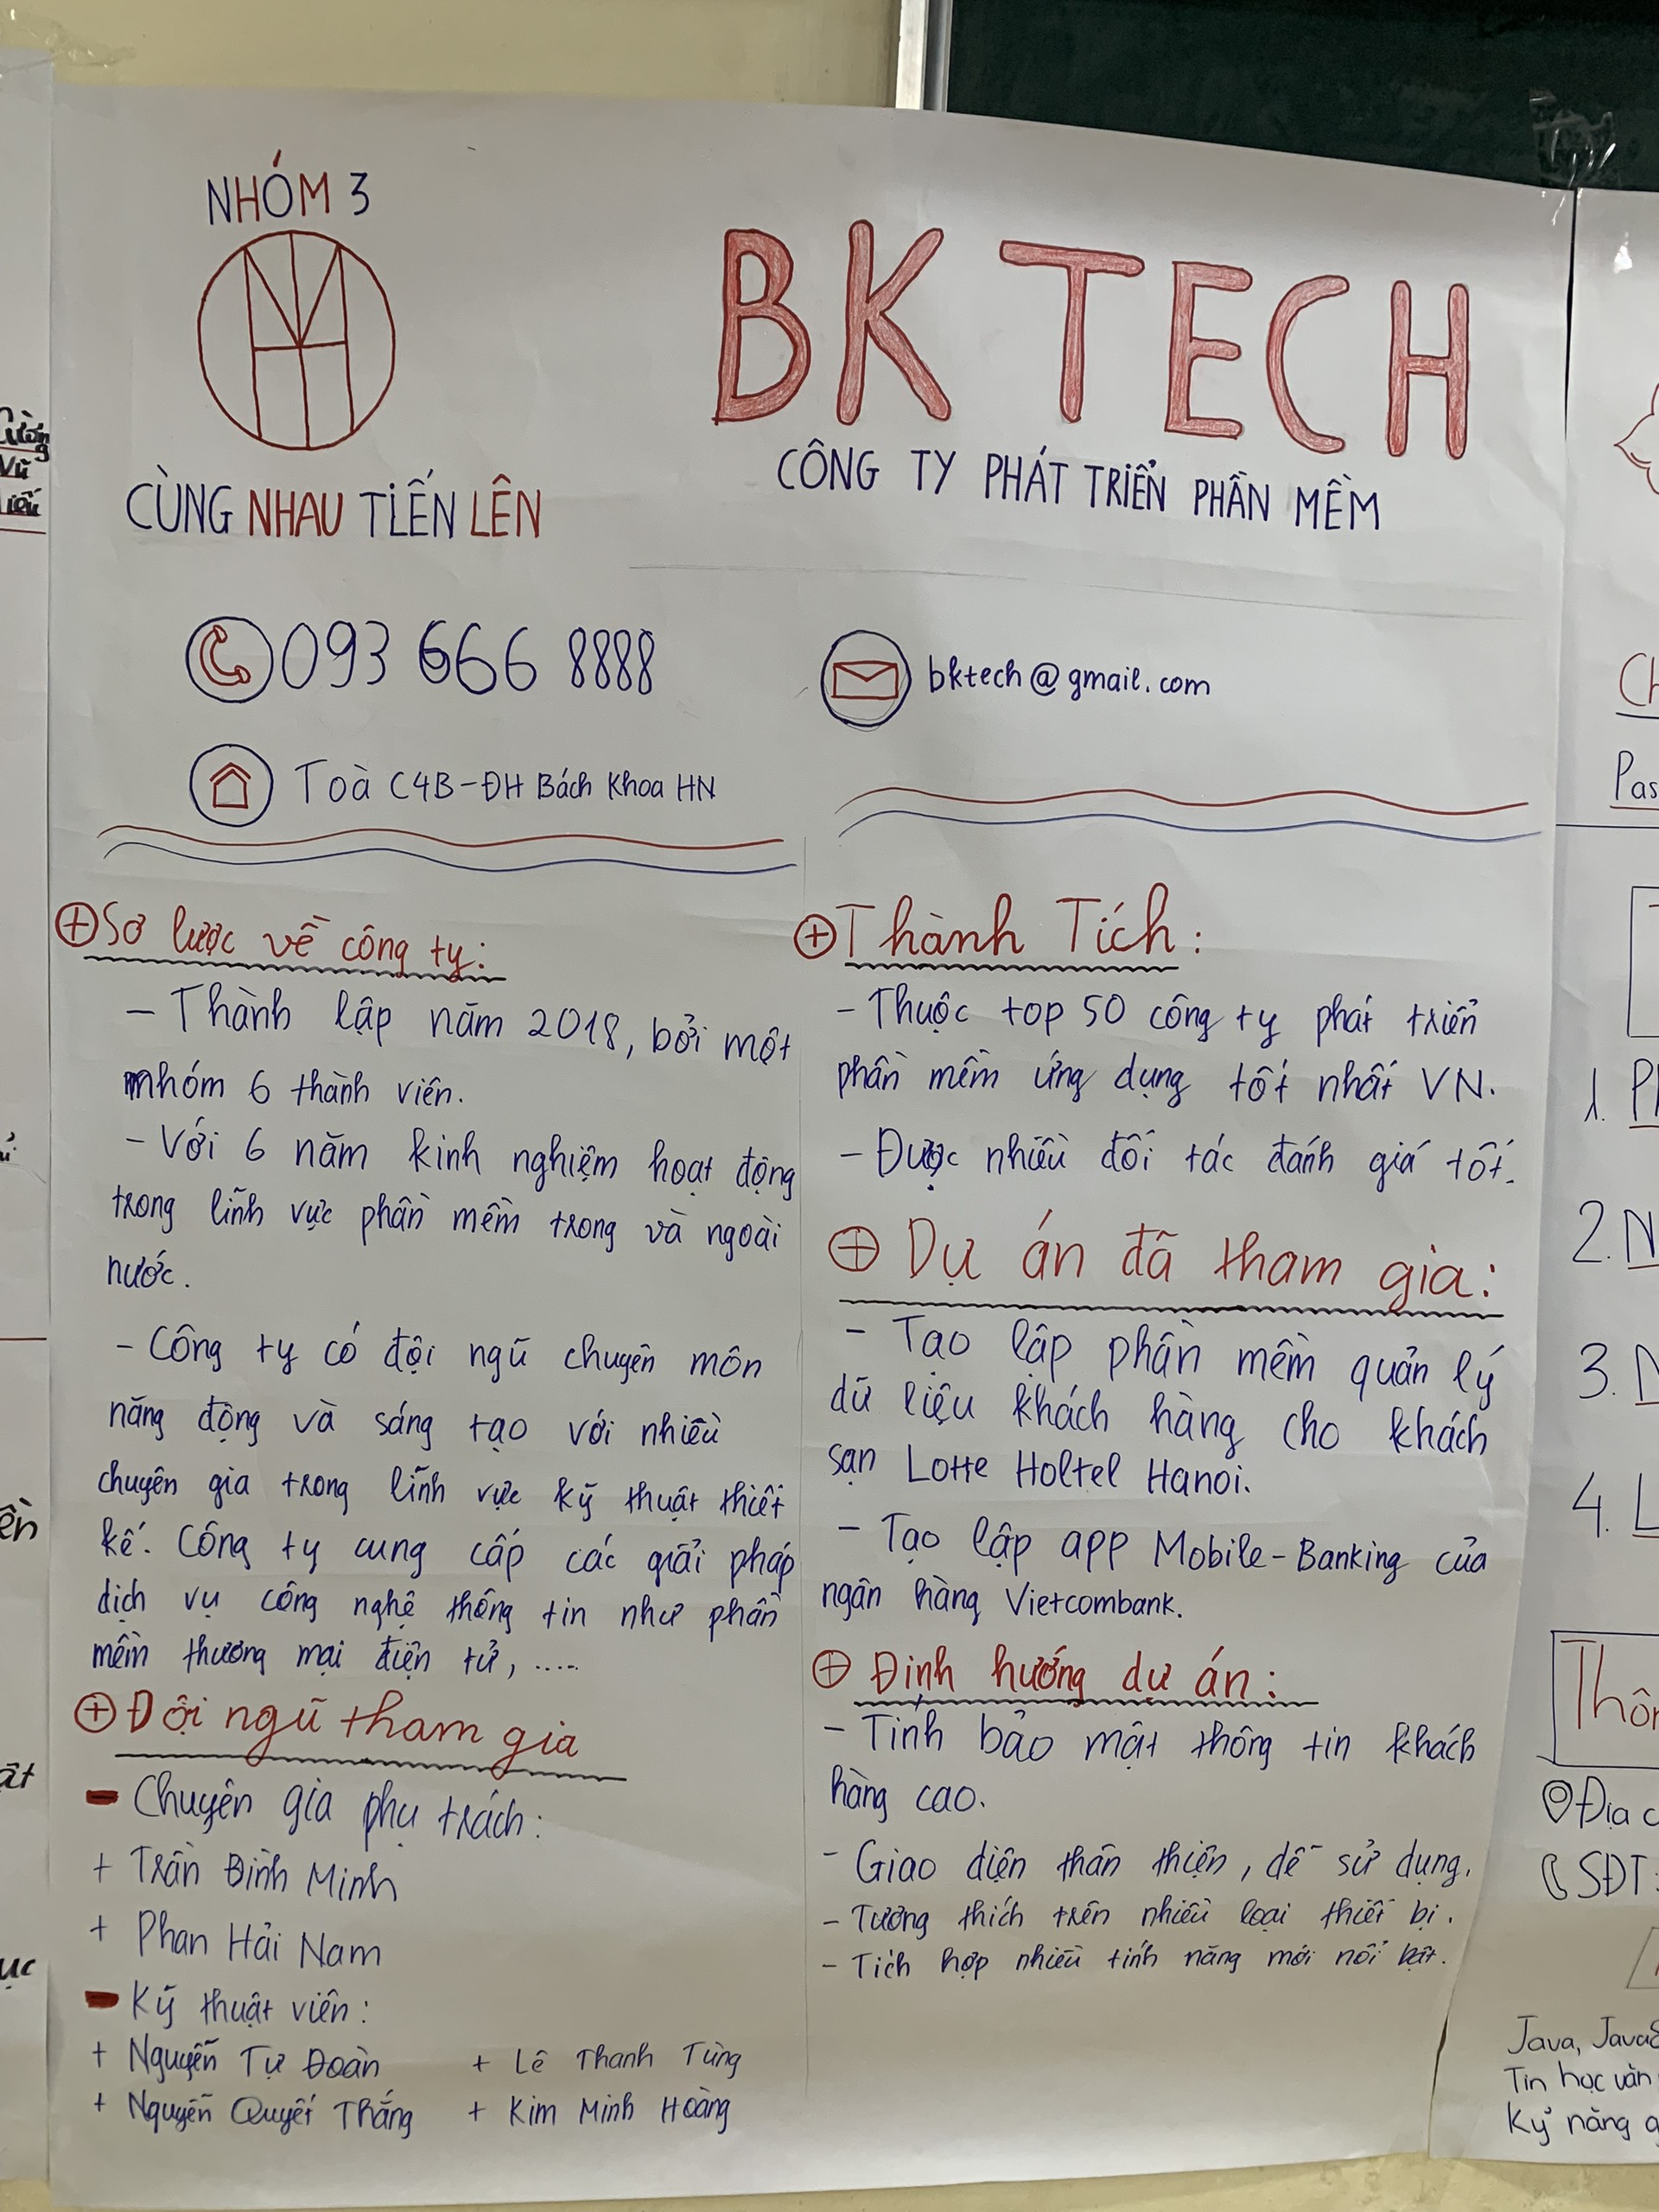 NHÓM 3
CÙNG NHAU TIẾN LÊN
BK TECH
CÔNG TY PHÁT TRIỂN PHẦN MỀM
093 666 8888
bktech@gmail.com
Toà C4B-ĐH Bách Khoa HN
Sơ lược về công ty:
- Thành lập năm 2018, bởi một
nhóm 6 thành viên.
- Với 6 năm kinh nghiệm hoạt động
trong lĩnh vực phần mềm trong và ngoài
nước.
- Công ty có đội ngũ chuyên môn
năng động và sáng tạo với nhiều
chuyên gia trong lĩnh vực kỹ thuật thiết
kế. Công ty cung cấp các giải pháp
dịch vụ công nghệ thông tin như phần
mềm thương mại điện tử, .....
Đội ngũ tham gia
- Chuyên gia phụ trách:
+ Trần Đình Minh
+ Phan Hải Nam
- Kỹ thuật viên:
+ Nguyễn Tự Đoàn + Lê Thanh Tùng
+ Nguyễn Quyết Thắng + Kim Minh Hoàng
Thành Tích:
- Thuộc top 50 công ty phát triển
phần mềm ứng dụng tốt nhất VN.
- Được nhiều đối tác đánh giá tốt.
Dự án đã tham gia:
- Tạo lập phần mềm quản lý
dữ liệu khách hàng cho khách
sạn Lotte Holtel Hanoi.
- Tạo lập app Mobile-Banking của
ngân hàng Vietcombank.
Định hướng dự án:
- Tính bảo mật thông tin khách
hàng cao.
- Giao diện thân thiện, dễ sử dụng.
- Tương thích trên nhiều loại thiết bị.
- Tích hợp nhiều tính năng mới nổi bật.
1.
2.
3.
4.
SĐT:
Java,
Tin học văn
Kỹ năng